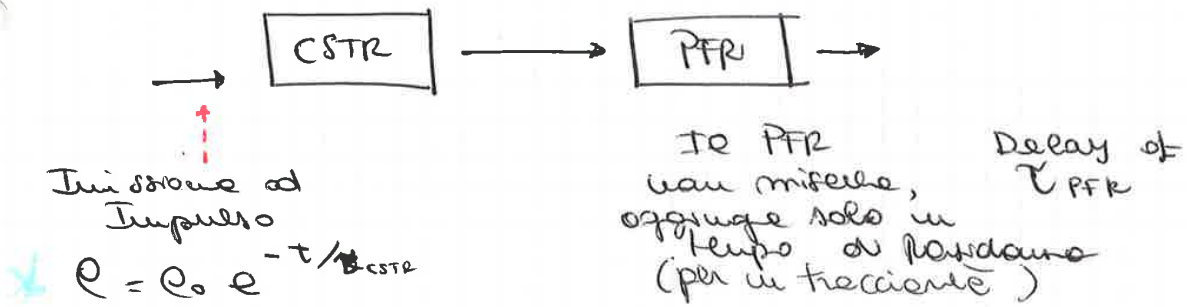 CSTR
PFR
Immissione ad
Impulso
C = C₀ e^(-t/τ_CSTR)
Il PFR
non miscela,
aggiunge solo un
tempo di
(per un tracciante)
Delay of
τ_PFR